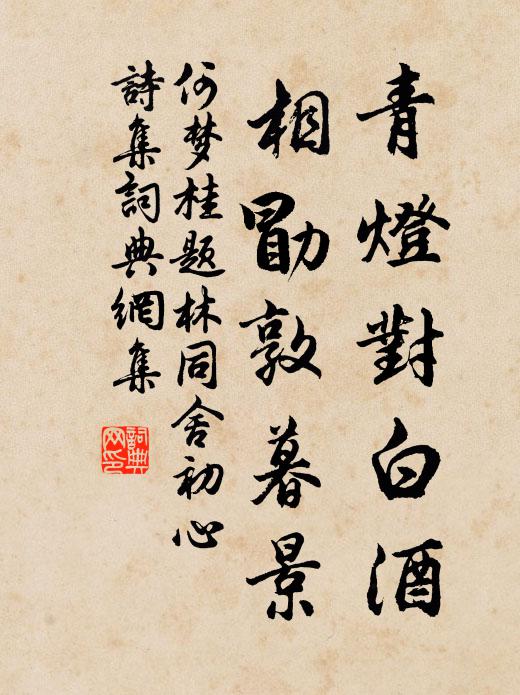 青燈對白酒
相勖敦暮景
何梦桂题林同舍初心
詩集詞典網集
詞典
网印